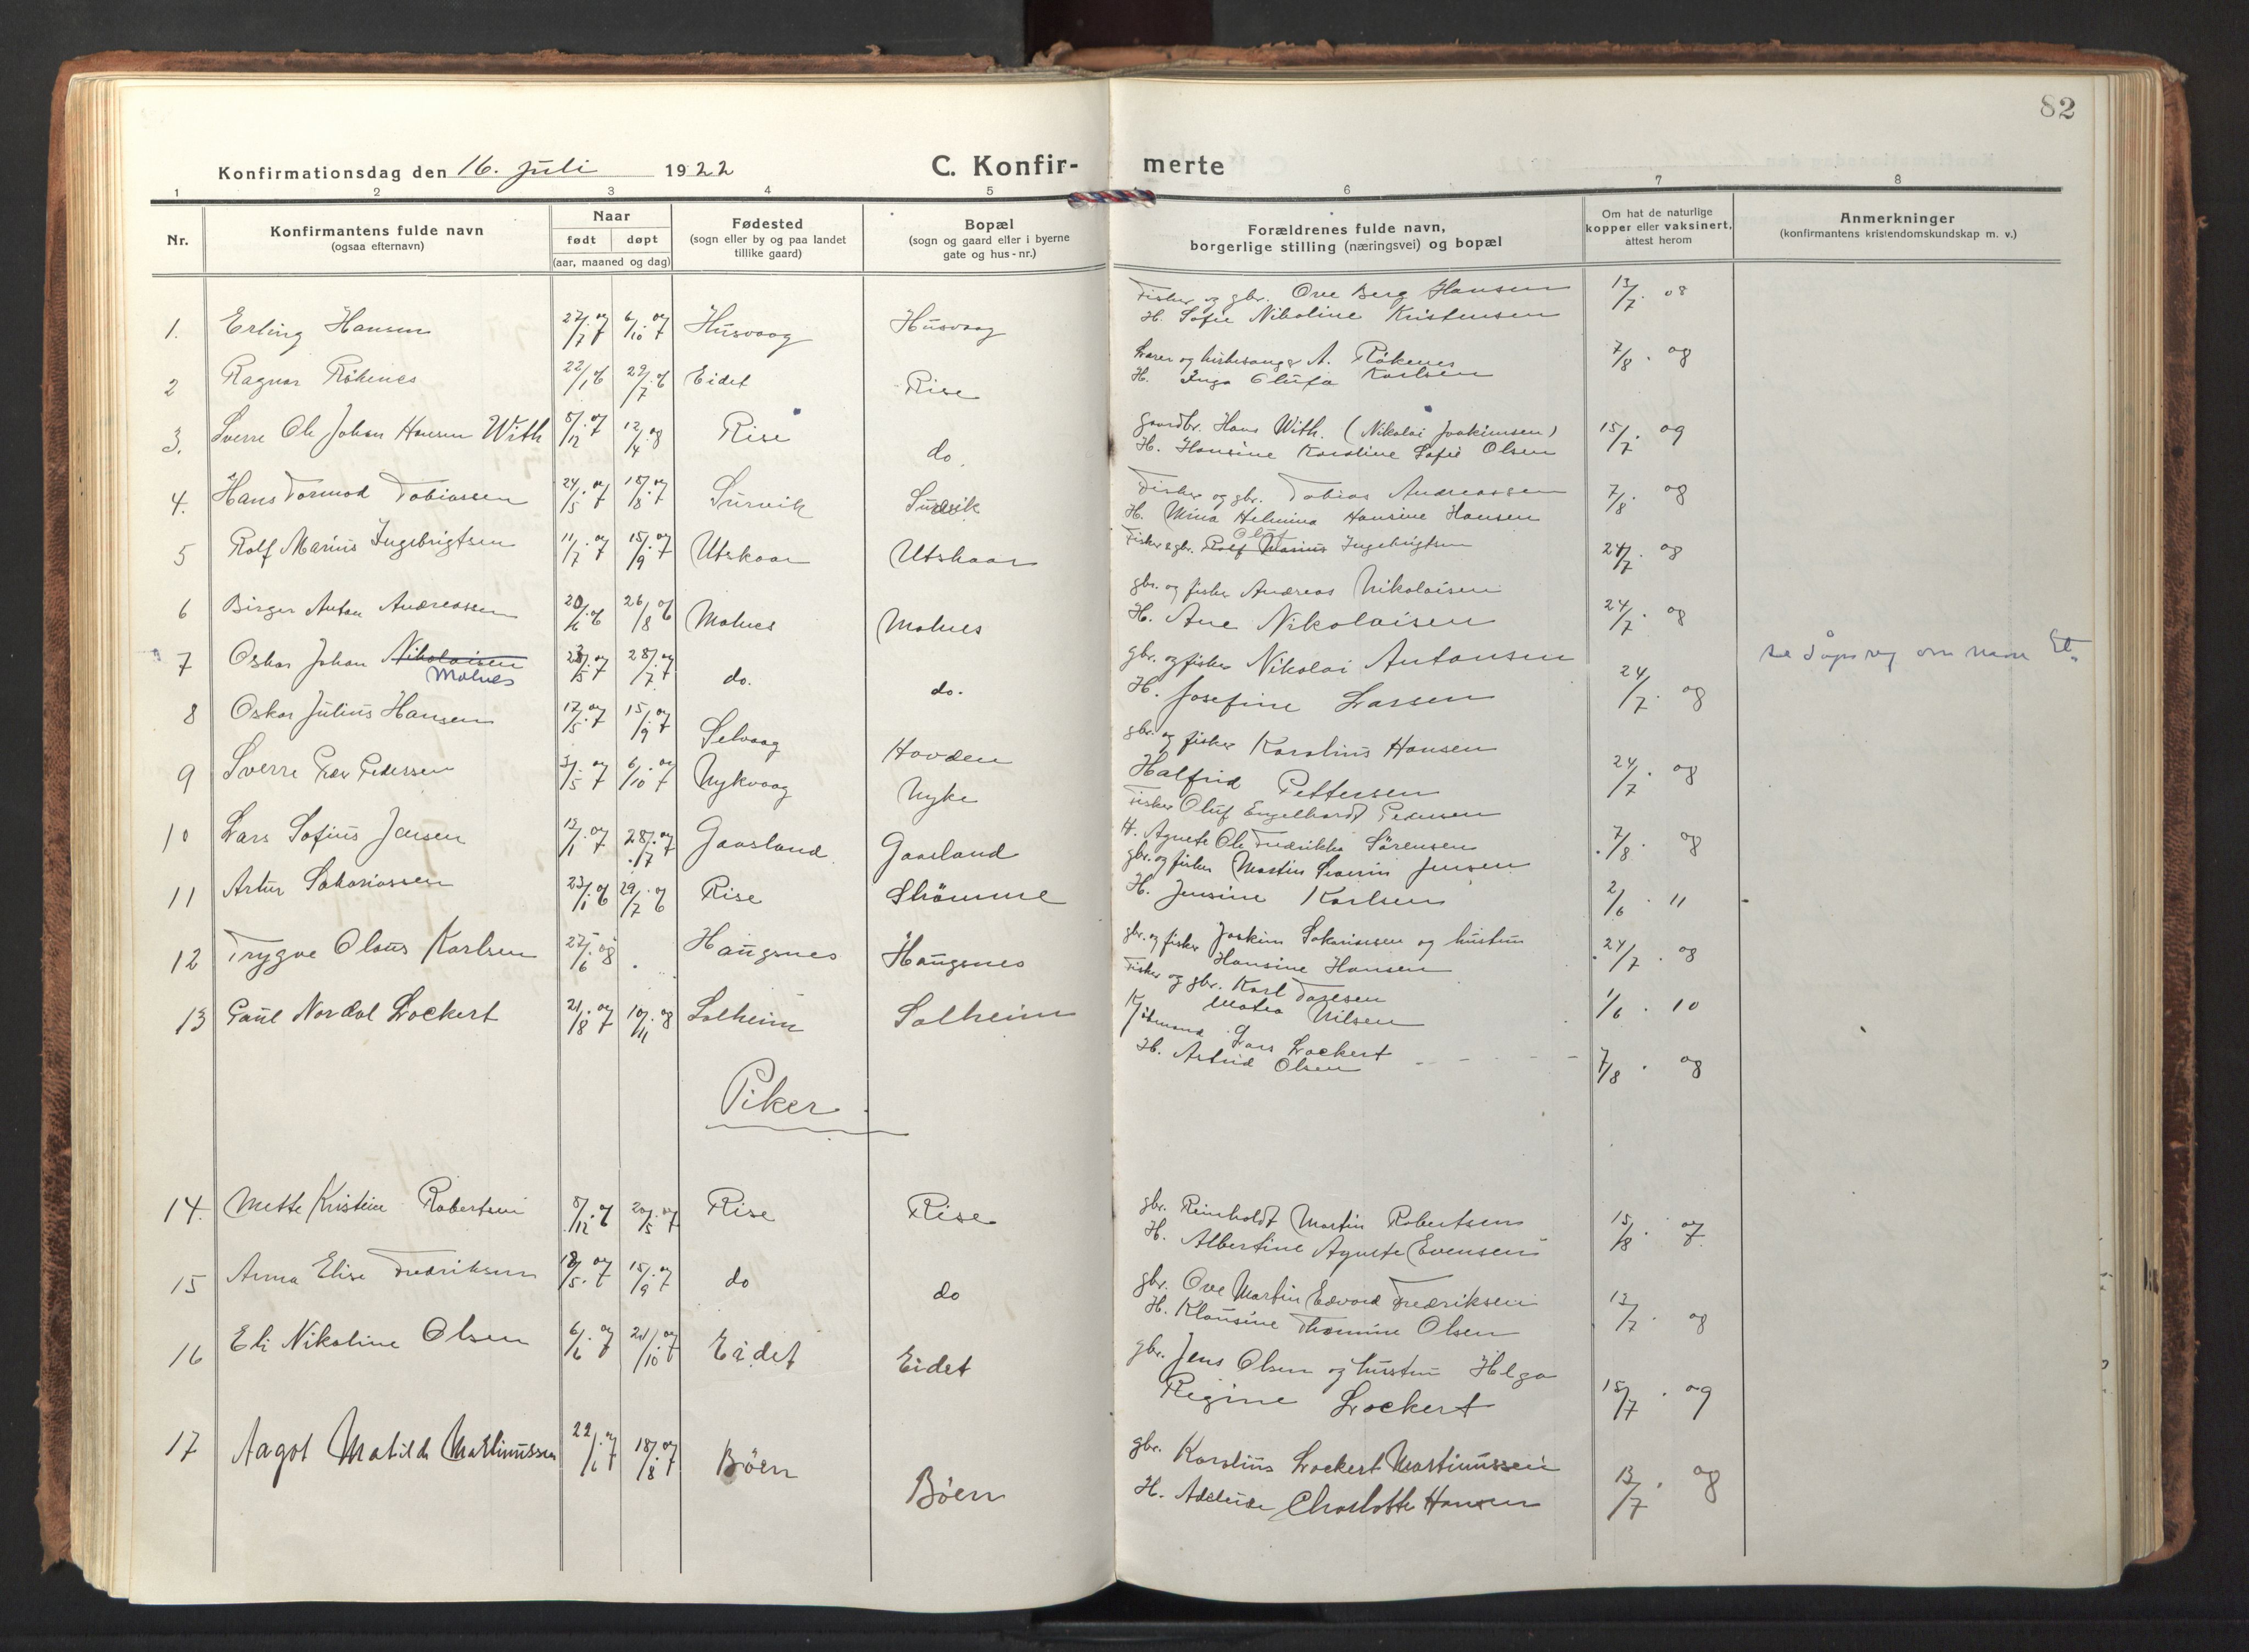 82
Konfirmationsdag den 16. Juli 1922
C. Konfir- merte
1 2 3 4 5 6 7 8
Nr.
Konfirmantens fulde navn
(ogsaa efternavn)
Naar
født døpt
(aar, maaned og dag)
Fødested
(sogn eller by og paa landet
tillike gaard)
Bopæl
(sogn og gaard eller i byerne
gate og hus-nr.)
Forældrenes fulde navn,
borgerlige stilling (næringsvei) og bopæl
Om hat de naturlige
kopper eller vaksinert,
attest herom
Anmerkninger
(konfirmantens kristendomskundskap m. v.)
1. Erling Hansen 27/7. 07 6/10. 07 Husvaag Husvaag
Fisker og gbr. Ove Berg Hansen 13/7. 08
H. Sofie Nikoline Kristensen
2 Ragnar Røkenes 22/1. 06 29/7. 06 Eidet Rise
Lærer og kirkesanger A. Røkenes 7/8. 08
H. Inga Olufa Karlsen
3. Sverre Ole Johan Hansen With 8/12. 07 12/4. 08 Rise do.
Gaardbr. Hans With. (Nikolai Joakimsen) 15/7. 09
H. Hansine Karoline Sofie Olsen
4. Hans Tormod Tobiassen 24/5. 07 18/8. 07 Survik Survik
Fisker og gbr. Tobias Andreassen 7/8. 08
H. Mina Helmina Hansine Hansen
5 Rolf Marius Ingebrigtsen 11/7. 07 15/9. 07 Utskaar Utskaar
Olaf
Fisker & gbr. Rolf Marius Ingebrigtsen 24/7. 08
6 Birger Anton Andreassen 20/6. 06 26/8 06 Malnes Malnes
gbr. og fisker Andreas Nikolaisen 24/7. 08
H. Ane Nikolaisen
7 Oskar Johan Nikolaisen 07 28/7. 07 do. do.
Malnes
gbr. og fisker Nikolai Antonsen 24/7. 08
H. Josefine Lassen
se dåpsreg om navn
8 Oskar Julius Hansen 17/5. 07 15/9. 07 Selvaag Hovden
gbr. og fisker Karolius Hansen 24/7. 08
Halfrid Pettersen
9 Sverre Peder Pedersen 3/5. 07 6/10. 07 Nykvaag Nyke
Fisker Oluf Engelhardt Pedersen 7/8. 08
H. Agnete Ole Fredrikke Sørensen
10 Lars Sofius Jensen 13/1. 07 28/7. 07 Gaasland Gaasland
gbr. og fisker Martin Severin Jensen 2/6. 11
H. Jensine Karlsen
11 Artur Sakariassen 23/1. 06 29/7. 06 Rise Strömme
gbr. og fisker Joakim Sakariassen og hustru 24/7. 08
Hansine Hansen
12 Trygve Olaus Karlsen 27/6. 08 Haugsnes Haugsnes
Fisker og gbr. Karl Torlesen 1/6. 10
Matea Nilsen
13 Paul Nordal Lockert 21/8. 07 19/11. 08 Solheim Solheim
Kjøbmand Lars Lockert 7/8. 08
H. Astrid Olsen
Piker
14. Mette Kristine Robertsen 8/12. 06 20/5. 07 Rise Rise
gbr. Reinholdt Martin Robertsen 15/8. 07
H. Albertine Agnete Evensen
15 Anna Elise Fredriksen 18/5. 07 15/9. 07 do do
gbr. Ove Martin Edvard Fredriksen 13/7. 08
H. Klausine Thomine Olsen
16 Eli Nikoline Olsen 6/6. 07 20/10. 07 Eidet Eidet
gbr. Jens Olsen og hustru Helga 15/7. 09
Regine Lockert
17 Aagot Matilde Martinussen 22/6. 07 18/8. 07 Bøen Bøen
gbr. Karolius Lockert Martinussen 13/7. 08
H. Adeleide Charlotte Hansen